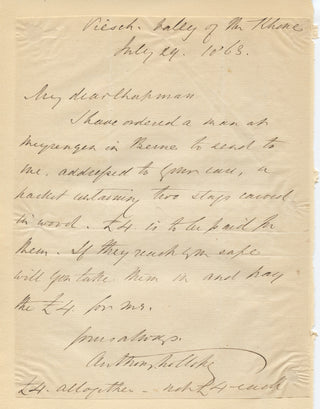 Viesch. Valley of the Rhone
July 29. 1863.
My dear Chapman
I have ordered a man at
Meyringen in Berne to send to
me, addressed to your care, a
packet containing two stags carved
in wood. £4 is to be paid for
them. If they reach you safe
will you take them in and pay
the £4 for me.
yours always
Anthony Trollope
£4 altogether - not £4 each